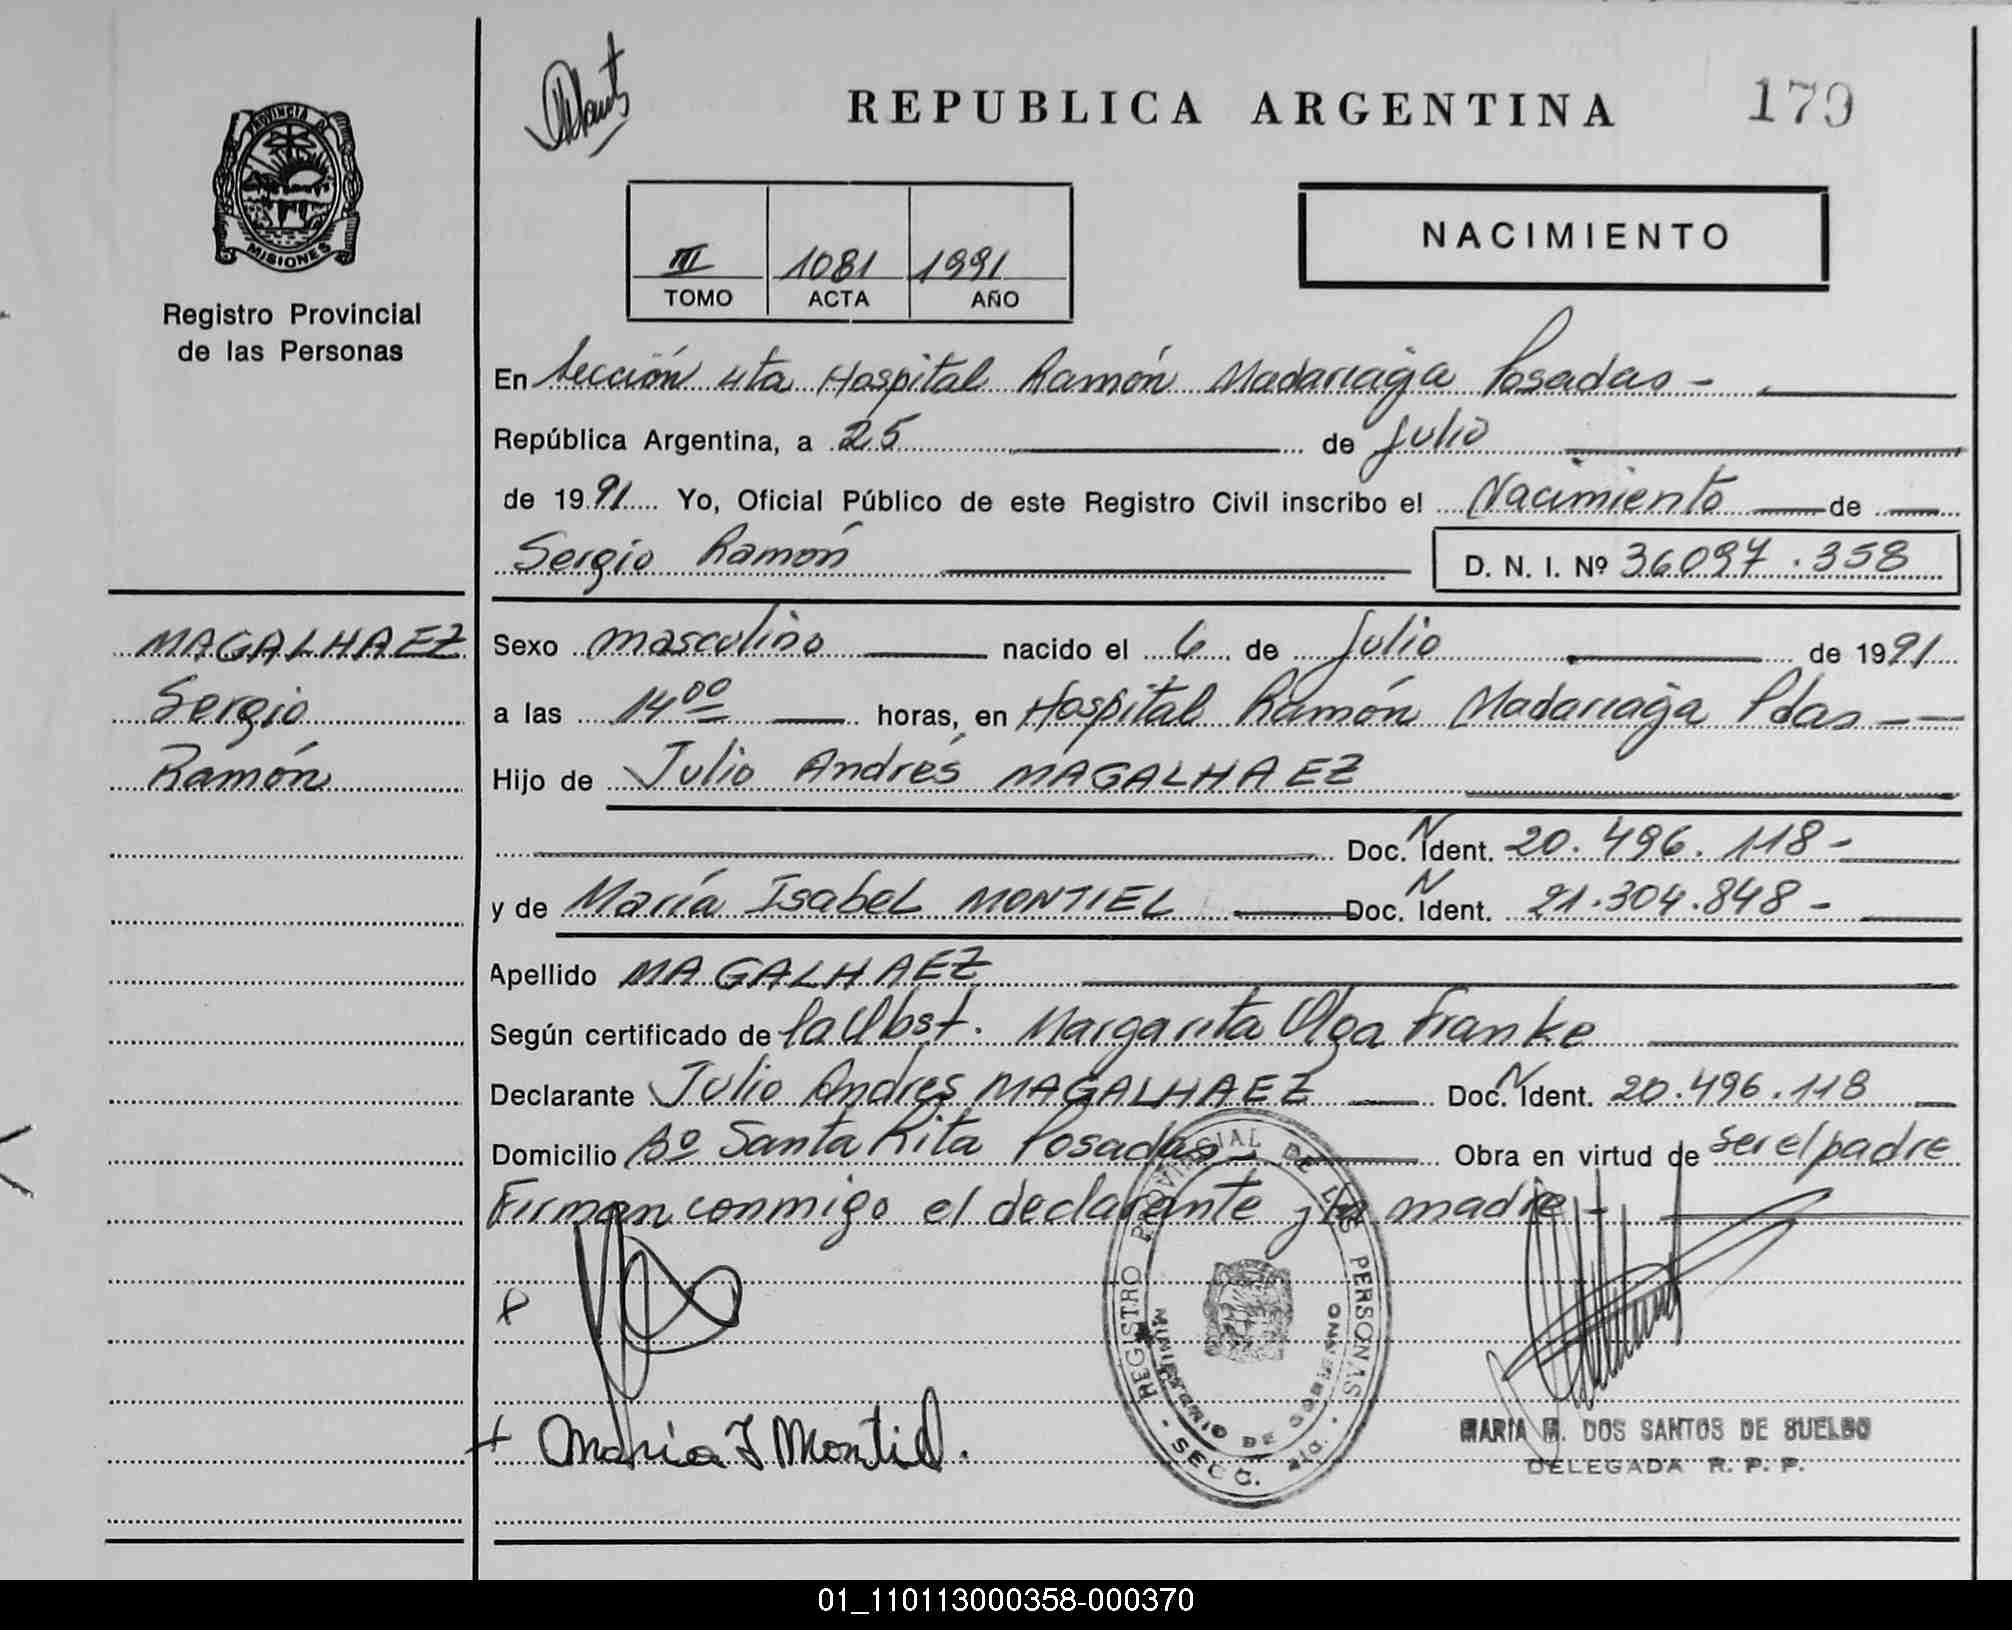 REPUBLICA ARGENTINA
179
PROVINCIA DE
MISIONES
Registro Provincial
de las Personas
III 1081 1991
TOMO ACTA AÑO
NACIMIENTO
En Sección 4ta Hospital Ramón Madariaga Posadas -
República Argentina, a 25 de Julio
de 1991 Yo, Oficial Público de este Registro Civil inscribo el Nacimiento de
Sergio Ramón D. N. I. Nº 36097.358
MAGALHAEZ
Sergio
Ramón
Sexo masculino nacido el 6 de Julio de 1991
a las 14 00 horas, en Hospital Ramón Madariaga Pdas --
Hijo de Julio Andrés MAGALHAEZ
Doc. N Ident. 20.496.118-
y de María Isabel MONTIEL Doc. N Ident. 21.304.848-
Apellido MAGALHAEZ
Según certificado de la Obst. Margarita Olga Franke
Declarante Julio Andrés MAGALHAEZ Doc. N Ident. 20.496.118
Domicilio Bº Santa Rita Posadas- Obra en virtud de ser el padre
Firman conmigo el declarante y la madre -
María I Montiel.
REGISTRO PROVINCIAL DE LAS PERSONAS
MINISTERIO DE GOBIERNO
- SECC. 4ta. -
MARIA M. DOS SANTOS DE SUELDO
DELEGADA R. P. P.
01_110113000358-000370